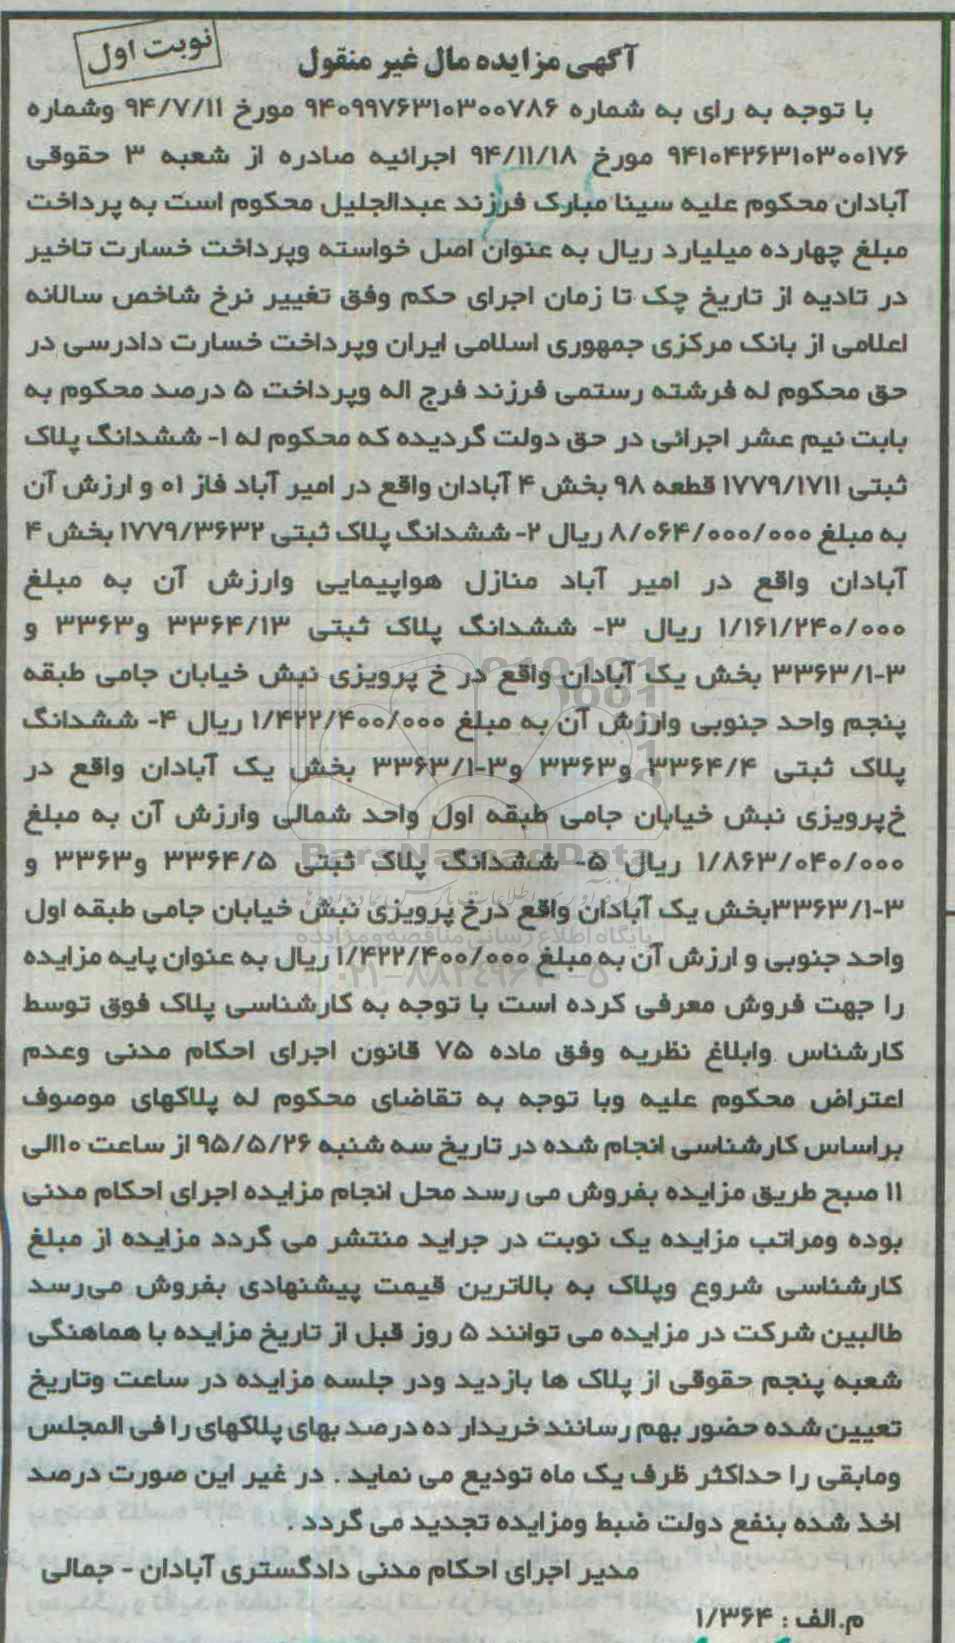 نوبت اول
آگهی مزایده مال غیر منقول
با توجه به رای به شماره ۹۴۰۹۹۷۶۳۱۰۳۰۰۷۸۶ مورخ ۹۴/۷/۱۱ وشماره
۹۴۱۰۴۲۶۳۱۰۳۰۰۱۷۶ مورخ ۹۴/۱۱/۱۸ اجرائیه صادره از شعبه ۳ حقوقی
آبادان محکوم علیه سینا مبارک فرزند عبدالجلیل محکوم است به پرداخت
مبلغ چهارده میلیارد ریال به عنوان اصل خواسته وپرداخت خسارت تاخیر
در تادیه از تاریخ چک تا زمان اجرای حکم وفق تغییر نرخ شاخص سالانه
اعلامی از بانک مرکزی جمهوری اسلامی ایران وپرداخت خسارت دادرسی در
حق محکوم له فرشته رستمی فرزند فرج اله وپرداخت ۵ درصد محکوم به
بابت نیم عشر اجرائی در حق دولت گردیده که محکوم له ۱- ششدانگ پلاک
ثبتی ۱۷۷۹/۱۷۱۱ قطعه ۹۸ بخش ۴ آبادان واقع در امیر آباد فاز ۰۱ و ارزش آن
به مبلغ ۸/۰۶۴/۰۰۰/۰۰۰ ریال ۲- ششدانگ پلاک ثبتی ۱۷۷۹/۳۶۳۲ بخش ۴
آبادان واقع در امیر آباد منازل هواپیمایی وارزش آن به مبلغ
۱/۱۶۱/۲۴۰/۰۰۰ ریال ۳- ششدانگ پلاک ثبتی ۳۳۶۴/۱۳ و۳۳۶۳ و
۳۳۶۳/۱-۳ بخش یک آبادان واقع در خ پرویزی نبش خیابان جامی طبقه
پنجم واحد جنوبی وارزش آن به مبلغ ۱/۴۲۲/۴۰۰/۰۰۰ ریال ۴- ششدانگ
پلاک ثبتی ۳۳۶۴/۴ و۳۳۶۳ و۳-۳۳۶۳/۱ بخش یک آبادان واقع در
خ‌پرویزی نبش خیابان جامی طبقه اول واحد شمالی وارزش آن به مبلغ
۱/۸۶۳/۰۴۰/۰۰۰ ریال ۵- ششدانگ پلاک ثبتی ۳۳۶۴/۵ و۳۳۶۳ و
۳۳۶۳/۱-۳بخش یک آبادان واقع درخ پرویزی نبش خیابان جامی طبقه اول
واحد جنوبی و ارزش آن به مبلغ ۱/۴۲۲/۴۰۰/۰۰۰ ریال به عنوان پایه مزایده
را جهت فروش معرفی کرده است با توجه به کارشناسی پلاک فوق توسط
کارشناس وابلاغ نظریه وفق ماده ۷۵ قانون اجرای احکام مدنی وعدم
اعتراض محکوم علیه وبا توجه به تقاضای محکوم له پلاکهای موصوف
براساس کارشناسی انجام شده در تاریخ سه شنبه ۹۵/۵/۲۶ از ساعت ۱۰الی
۱۱ صبح طریق مزایده بفروش می رسد محل انجام مزایده اجرای احکام مدنی
بوده ومراتب مزایده یک نوبت در جراید منتشر می گردد مزایده از مبلغ
کارشناسی شروع وپلاک به بالاترین قیمت پیشنهادی بفروش می‌رسد
طالبین شرکت در مزایده می توانند ۵ روز قبل از تاریخ مزایده با هماهنگی
شعبه پنجم حقوقی از پلاک ها بازدید ودر جلسه مزایده در ساعت وتاریخ
تعیین شده حضور بهم رسانند خریدار ده درصد بهای پلاکهای را فی المجلس
ومابقی را حداکثر ظرف یک ماه تودیع می نماید . در غیر این صورت درصد
اخذ شده بنفع دولت ضبط ومزایده تجدید می گردد .
مدیر اجرای احکام مدنی دادگستری آبادان - جمالی
م.الف : ۱/۳۶۴
ParsNamadData
پایگاه اطلاع رسانی مناقصه و مزایده